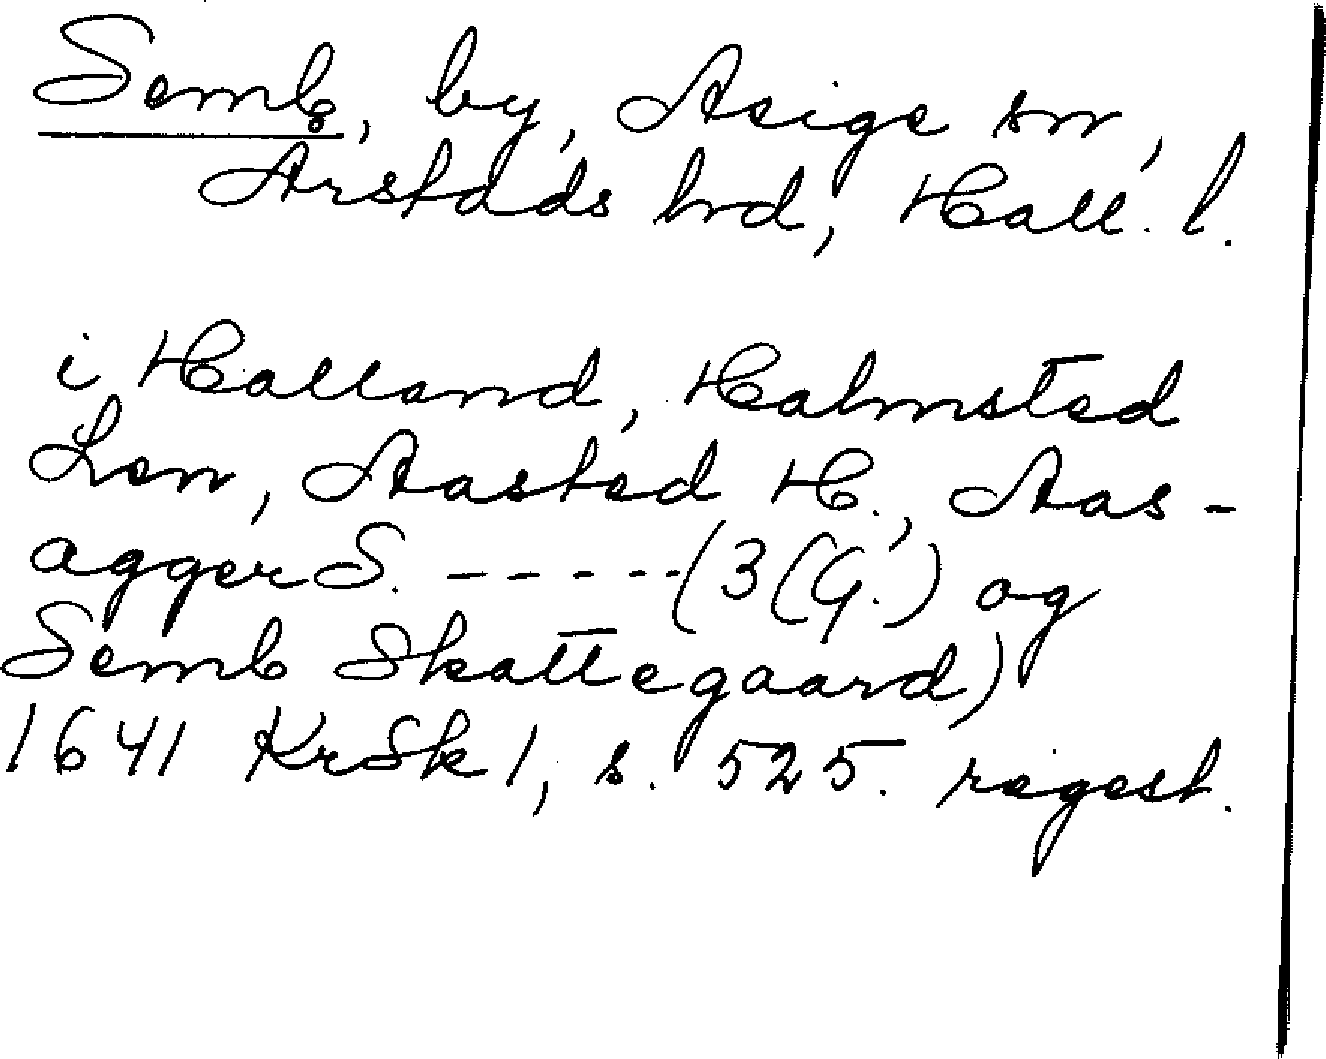 Semb, by, Asige sn,
Årstads hrd, Hall. l.
i Halland, Halmsted
Len, Aasted H., Aas-
agger S. - - - - - (3 (G.) og
Semb Skattegaard)
1641 KrSk 1, s. 525. regest.